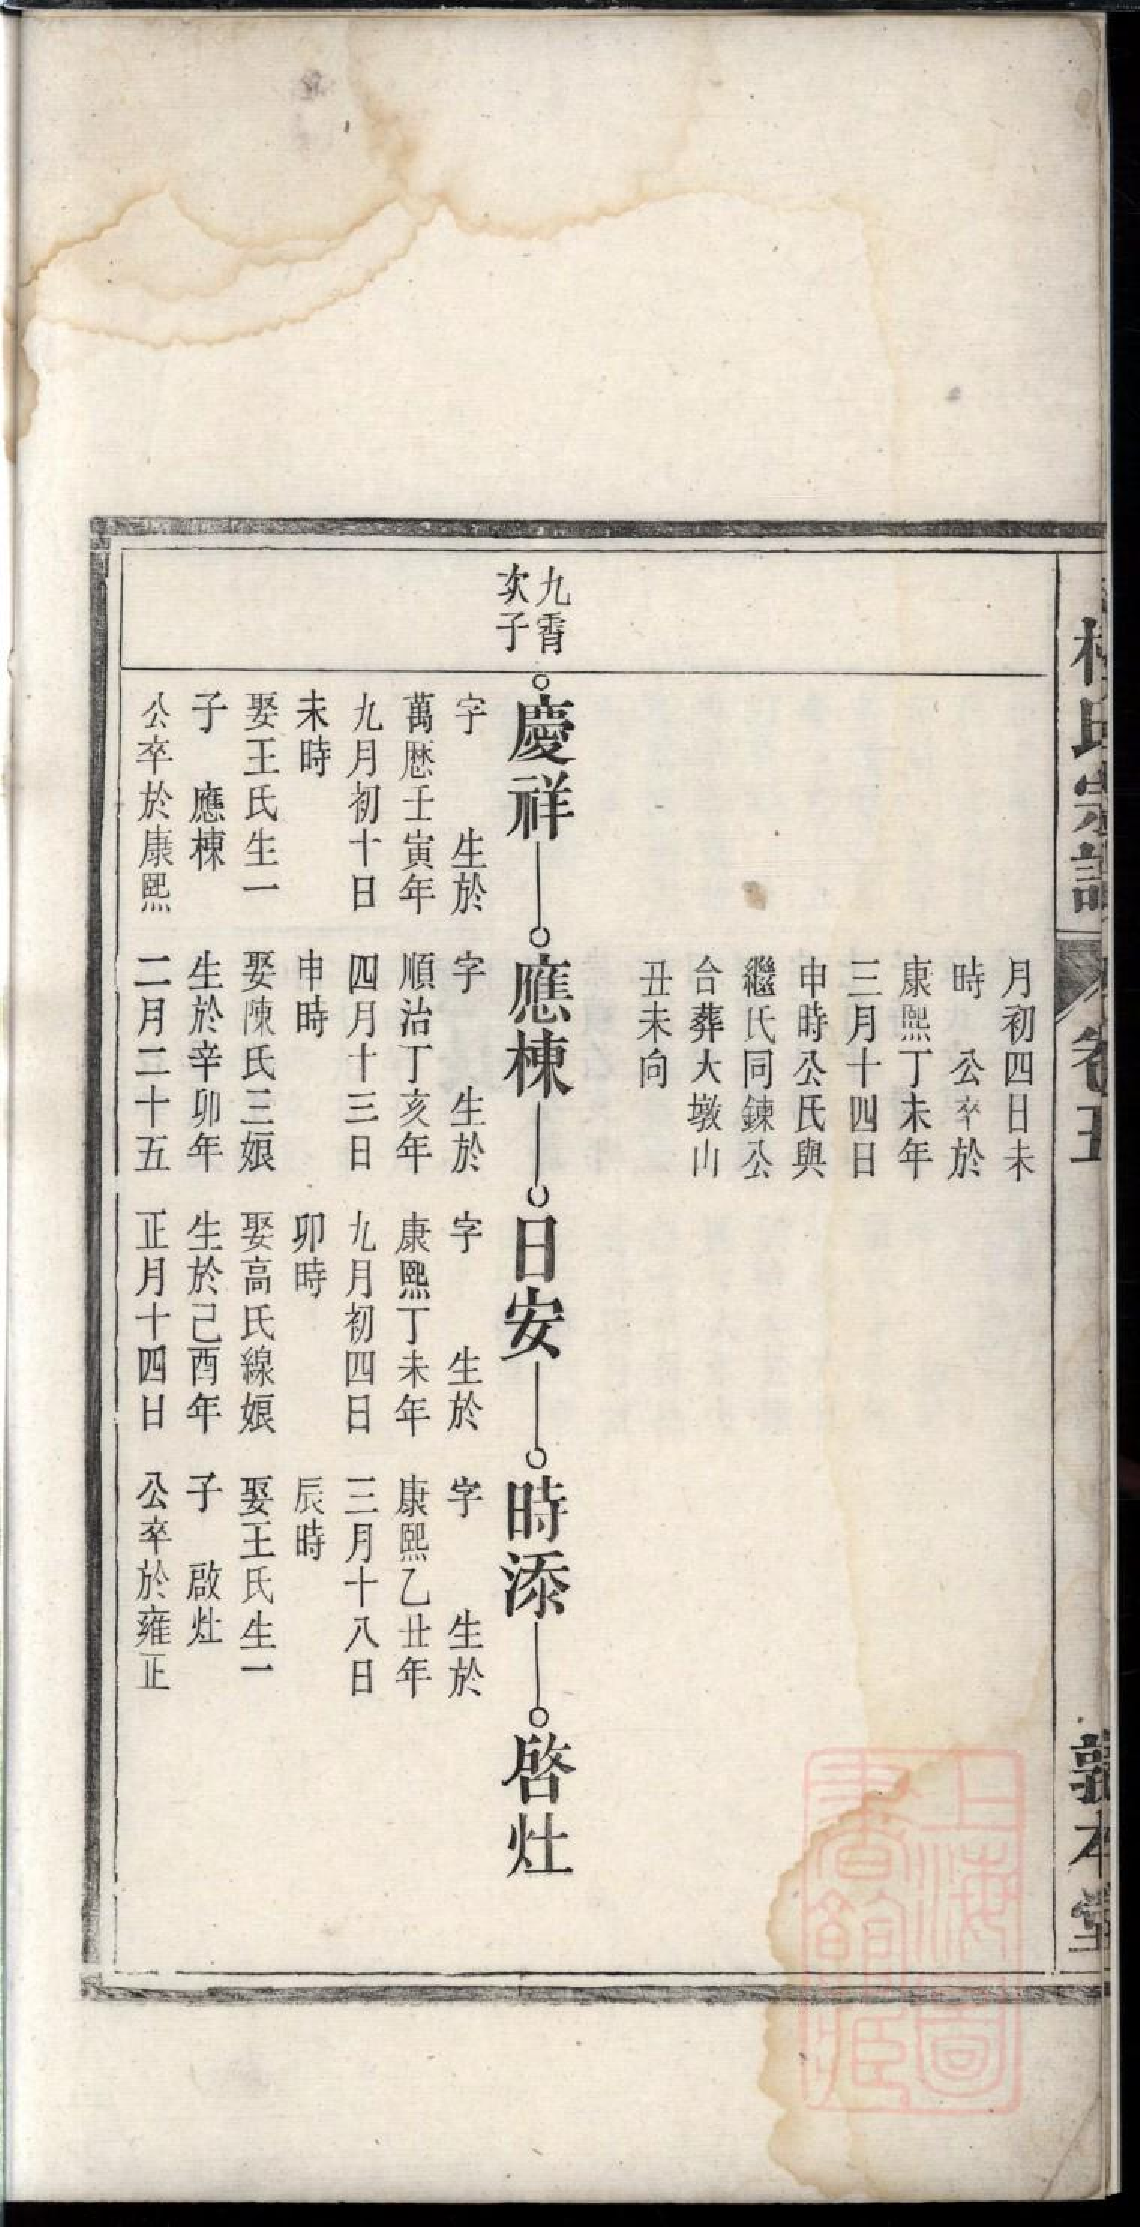 氏宗譜
卷五
敦本堂
月初四日未
時　公卒於
康熙丁未年
三月十四日
申時公氏與
繼氏同鍊公
合葬大墩山
丑未向
九霄
次子
慶祥
應棟
日安
時添
啓灶
字　生於
萬厯壬寅年
九月初十日
未時
娶王氏生一
子　應棟
公卒於康熙
字　生於
順治丁亥年
四月十三日
申時
娶陳氏三娘
生於辛卯年
二月二十五
字　生於
康熙丁未年
九月初四日
卯時
娶高氏線娘
生於己酉年
正月十四日
字　生於
康熙乙丑年
三月十八日
辰時
娶王氏生一
子　啟灶
公卒於雍正
上海圖
書館藏